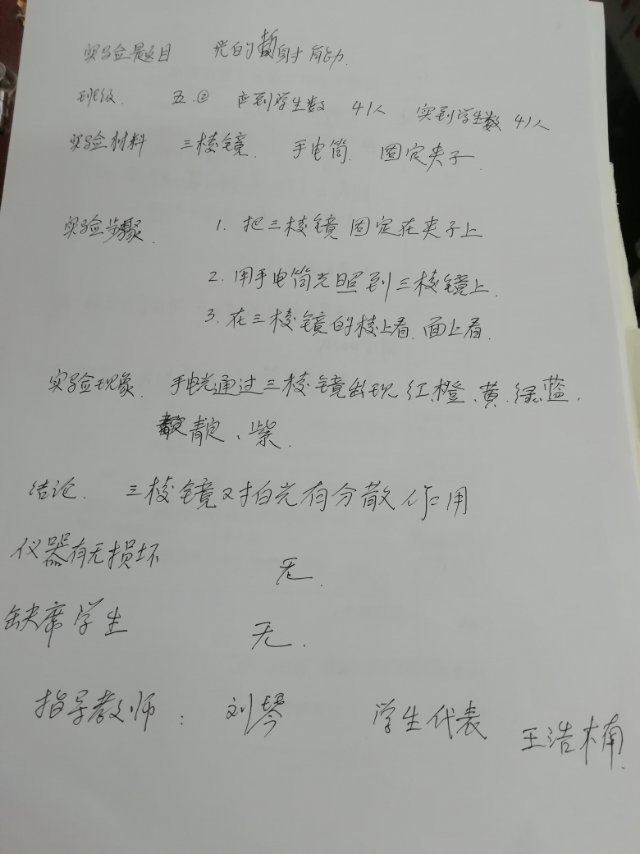 实验题目 光的折射能力.
班级. 五.② 应到学生数 41人 实到学生数 41人
实验材料 三棱镜. 手电筒. 固定夹子.
实验步骤. 1. 把三棱镜固定在夹子上
2. 用手电筒光照到三棱镜上.
3. 在三棱镜的棱上看.面上看.
实验现象. 手电光通过三棱镜出现红.橙、黄.绿.蓝.
靛、紫.
结论. 三棱镜对白光有分散作用
仪器有无损坏 无.
缺席学生 无.
指导教师: 刘琴 学生代表 王浩楠